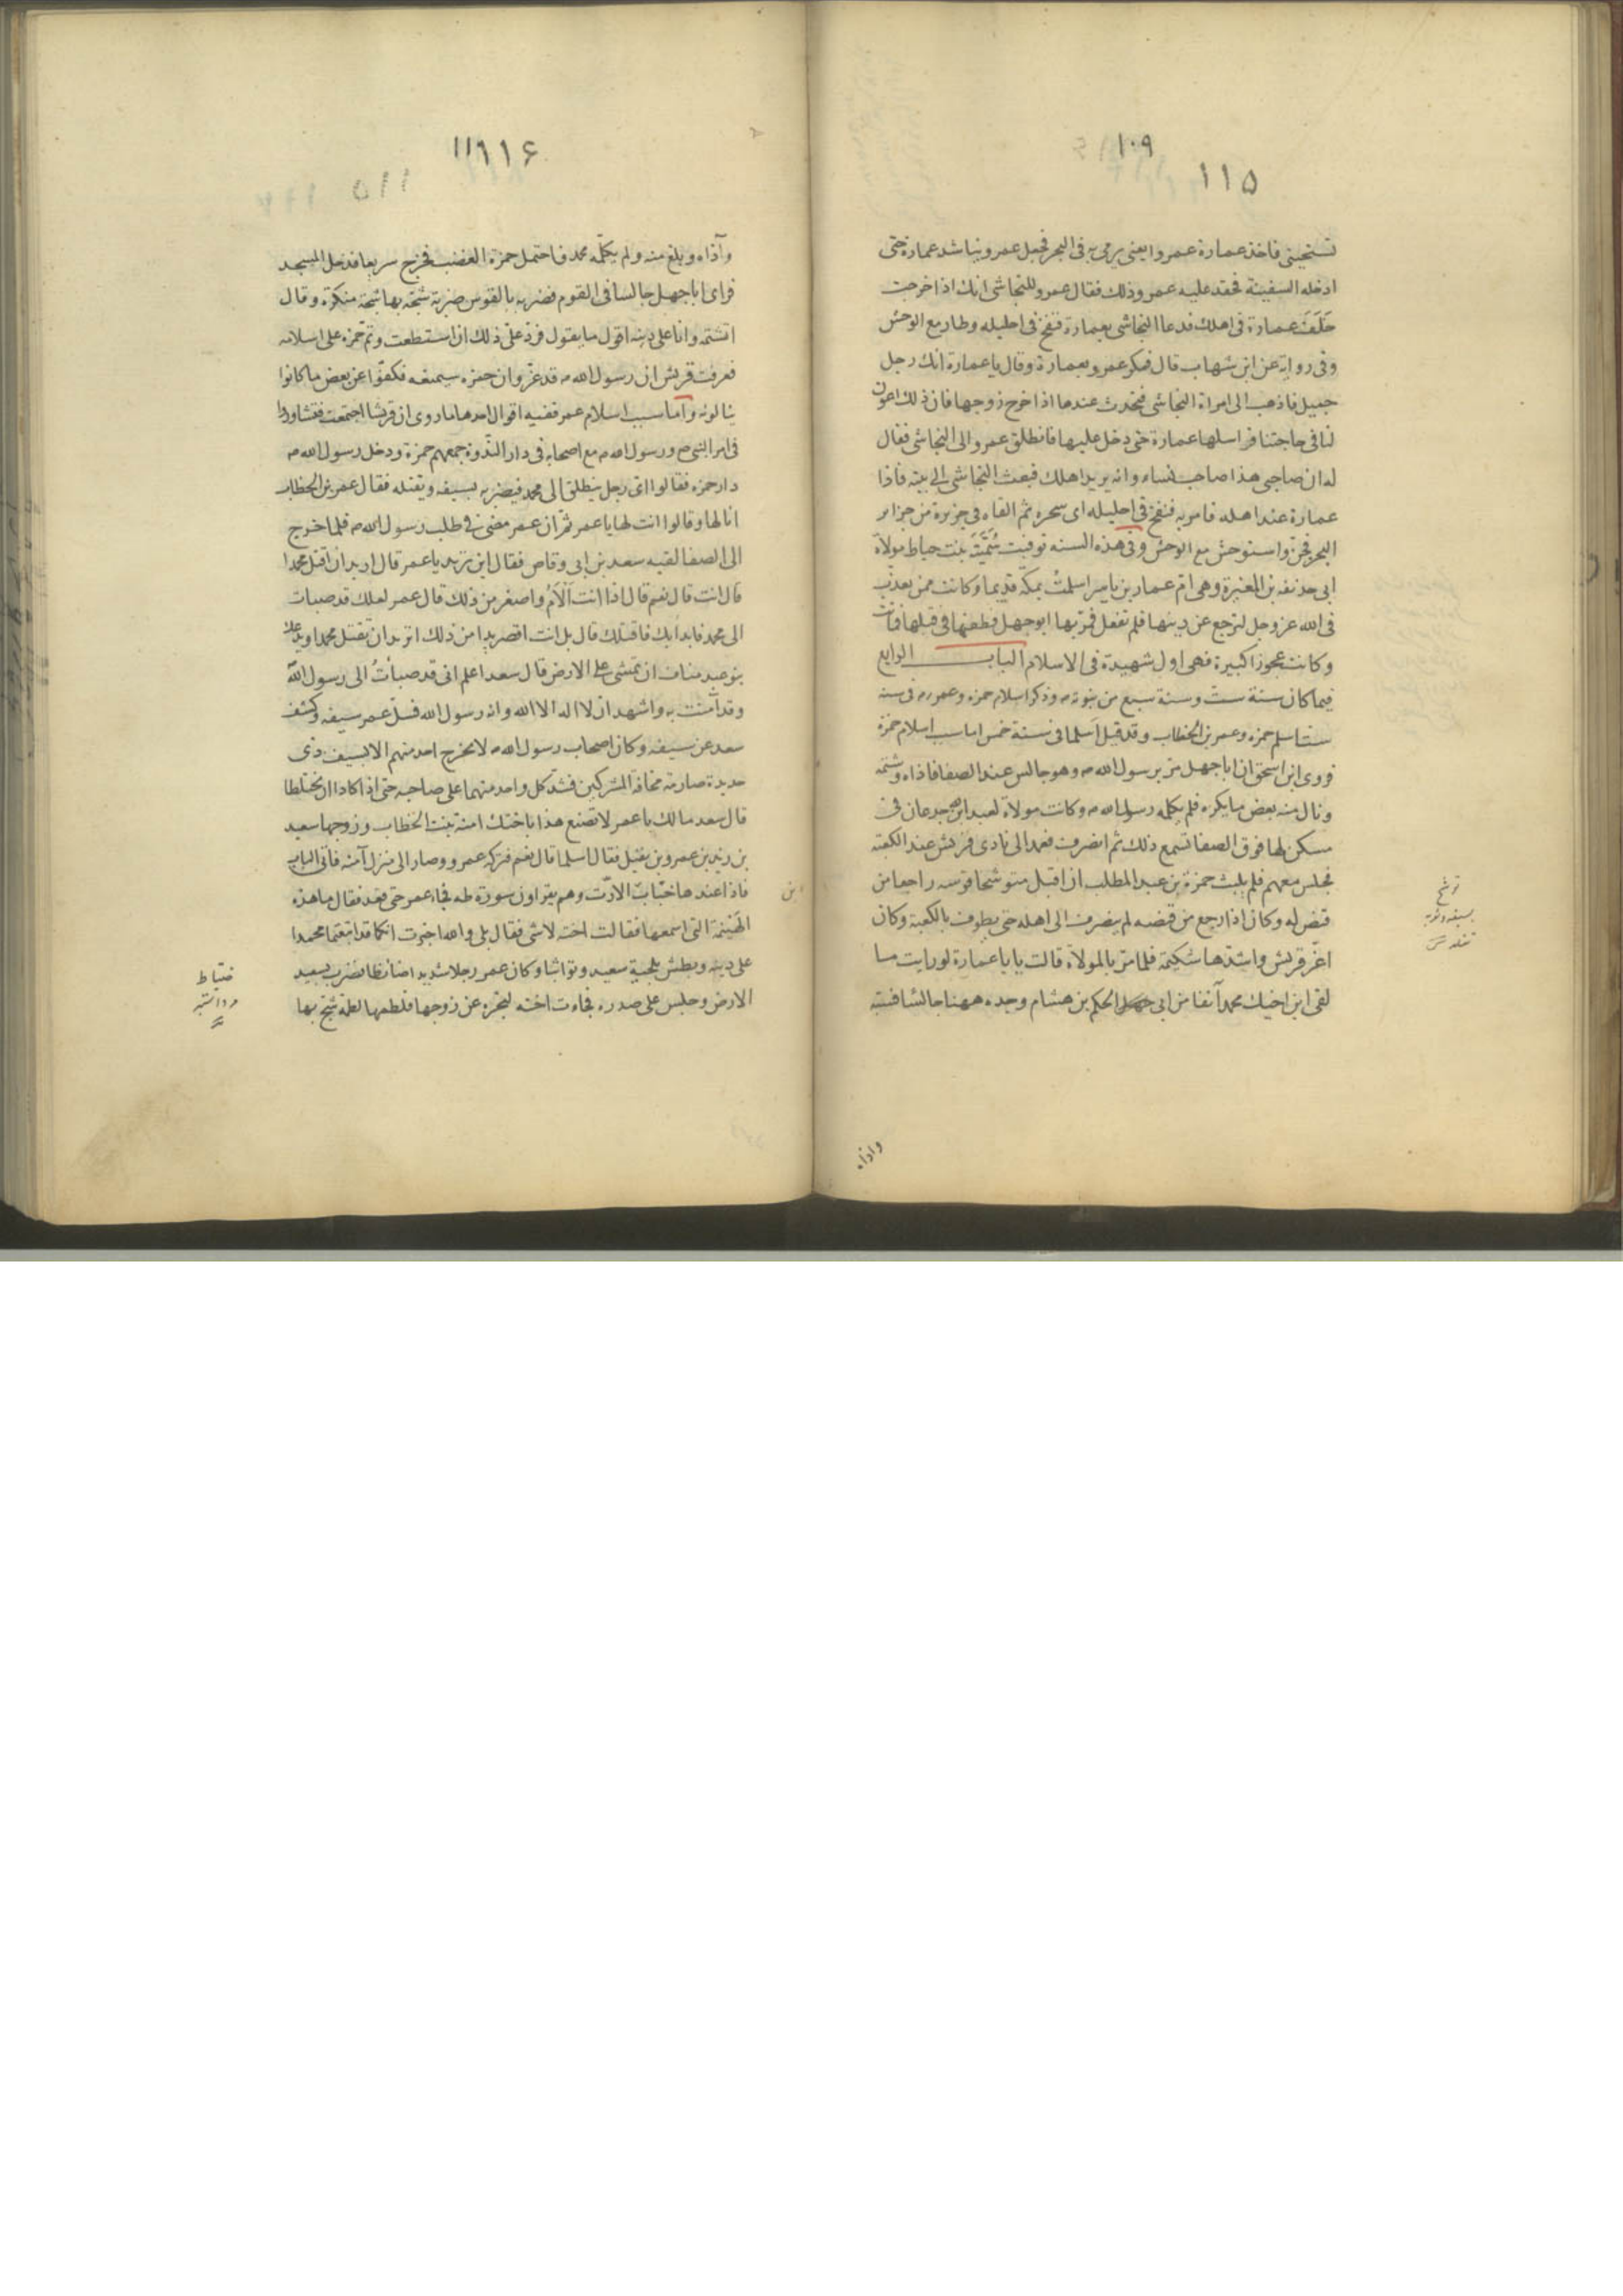 ١٠٩
١١٥
تستحيى فاخذ عمارة عمروا يعنى يرمى به فى البحر فجعل عمرو يناشد عمارة حتى
ادخله السفينة فحقد عليه عمرو ذلك فقال عمرو للنجاشى انك اذا خرجت
خلف عمارة فى اهلك فدعا النجاشى بعمارة فنفخ فى احليله وطار مع الوحش
وفى رواية عن ابن شهاب قال فمكر عمرو بعمارة وقال يا عمارة انك رجل
جميل فاذهب الى امراة النجاشى فتحدث عندها اذا خرج زوجها فان ذلك اعون
لنا فى حاجتنا فراسلها عمارة حتى دخل عليها فانطلق عمرو الى النجاشى فقال
له ان صاحبى هذا صاحب نساء وانه يريد اهلك فبعث النجاشى الى بيته فاذا
عمارة عند اهله فامر به فنفخ فى احليله اى سحره ثم القاه فى جزيرة من جزاير
البحر فجن واستوحش مع الوحش وفى هذه السنه توفيت سُمَيَّة بنت خياط مولاة
ابى حذيفه بن المغيرة وهى ام عمار بن ياسر اسلمت بمكة قديما وكانت ممن يعذب
فى الله عز وجل لترجع عن دينها فلم تفعل فمر بها ابو جهل فطعنها فى قبلها فماتت
وكانت عجوزا كبيرة فهى اول شهيدة فى الاسلام الباب الرابع
فيما كان سنة ست وسنة سبع من نبوته م وذكر اسلام حمزه وعمر رم فى سنه
ست اسلم حمزه وعمر بن الخطاب وقد قيل اسلما فى سنة خمس اما سبب اسلام حمزة
فروى ابن اسحق ان ابا جهل مر برسول الله م وهو جالس عند الصفا فاذاه وشتمه
ونال منه بعض ما يكره فلم يكلمه رسول الله م وكانت مولاة لعبد ابن جدعان فى
مسكن لها فوق الصفا تسمع ذلك ثم انصرف فعمد الى نادى قريش عند الكعبة
فجلس معهم فلم يلبث حمزة بن عبد المطلب ان اقبل متوشحا قوسه راجعا من
قنص له وكان اذا رجع من قنصه لم ينصرف الى اهله حتى يطوف بالكعبة وكان
اعز قريش واشدها شكيمة فلما مر بالمولاة قالت يا با عمارة لو رايت ما
لقى ابن اخيك محمد آنفا من ابى جهل الحكم بن هشام وجده ههنا جالسا فسبه
توشح
واذاه
١١٦
وآذاه وبلغ منه ولم يكلمه محمد فاحتمل حمزة الغضب فخرج سريعا فدخل المسجد
فراى ابا جهل جالسا فى القوم فضربه بالقوس ضربة شجه بها شجة منكرة وقال
اتشتمه وانا على دينه اقول ما يقول فرد على ذلك ان استطعت وتم حمزه على اسلامه
فعرفت قريش ان رسول الله م قد عز وان حمزه سيمنعه فكفوا عن بعض ما كانوا
ينالونه واما سبب اسلام عمر ففيه اقوال احدها ما روى ان قريشا اجتمعت فتشاوروا
فى امر النبى م ورسول الله م مع اصحابه فى دار الندوة جمعهم حمزة ودخل رسول الله م
دار حمزه فقالوا اى رجل ينطلق الى محمد فيضربه بسيفه ويقتله فقال عمر بن الخطاب
انا لها وقالوا انت لها يا عمر ثم ان عمر مضى فى طلب رسول الله م فلما خرج
الى الصفا لقيه سعد بن ابى وقاص فقال اين تريد يا عمر قال اريد ان اقتل محمدا
قال انت قال نعم قال اذا انت ألأم واصغر من ذلك قال عمر لعلك قد صبات
الى محمد فابدا بك فاقتلك قال بل انت اقصر يدا من ذلك اتريد ان تقتل محمدا ويدعك
بنو عبد مناف ان تمشى على الارض قال سعد اعلم انى قد صبأت الى رسول الله
وقد آمنت به واشهد ان لا اله الا الله وانه رسول الله فسل عمر سيفه وكشف
سعد عن سيفه وكان اصحاب رسول الله م لا يخرج احد منهم الا بسيف ذى
حديدة صارمة مخافة المشركين فشد كل واحد منهما على صاحبه حتى اذا كادا ان يختلطا
قال سعد مالك يا عمر لا تصنع هذا باختك امنة بنت الخطاب وزوجها سعيد
بن زيد بن عمرو بن نفيل فقال اسلما قال نعم فتركه عمر ووصار الى منزل آمنه فاتى الباب
فاذا عندها خباب الارت وهم يقراون سورة طه فجاء عمر حتى قعد فقال ما هذه
الهينمة التى اسمعها فقالت اخته لا شى فقال بلى والله اخبرت انكما قد اتبعتما محمدا
على دينه وبطش بلحية سعيد وتواثبا وكان عمر رجلا شديدا فضرب بسعيد
الارض وجلس على صدره فجاءت اخته لتحجزه عن زوجها فلطمها لطمة شج بها